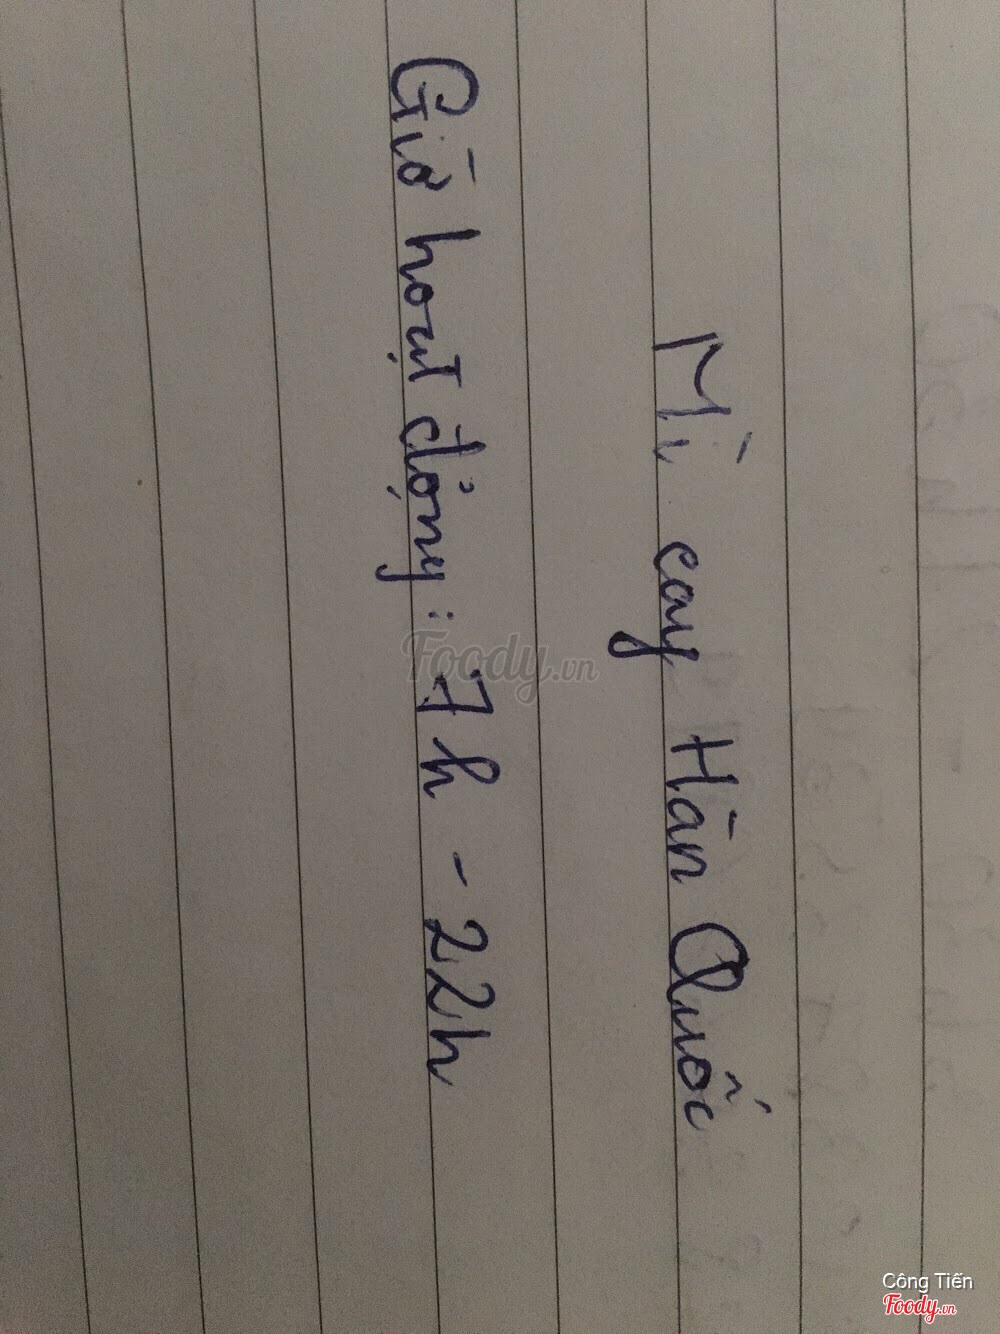 Mì cay Hàn Quốc
Giờ hoạt động: 7h - 22h
Foody.vn
Công Tiến
Foody.vn